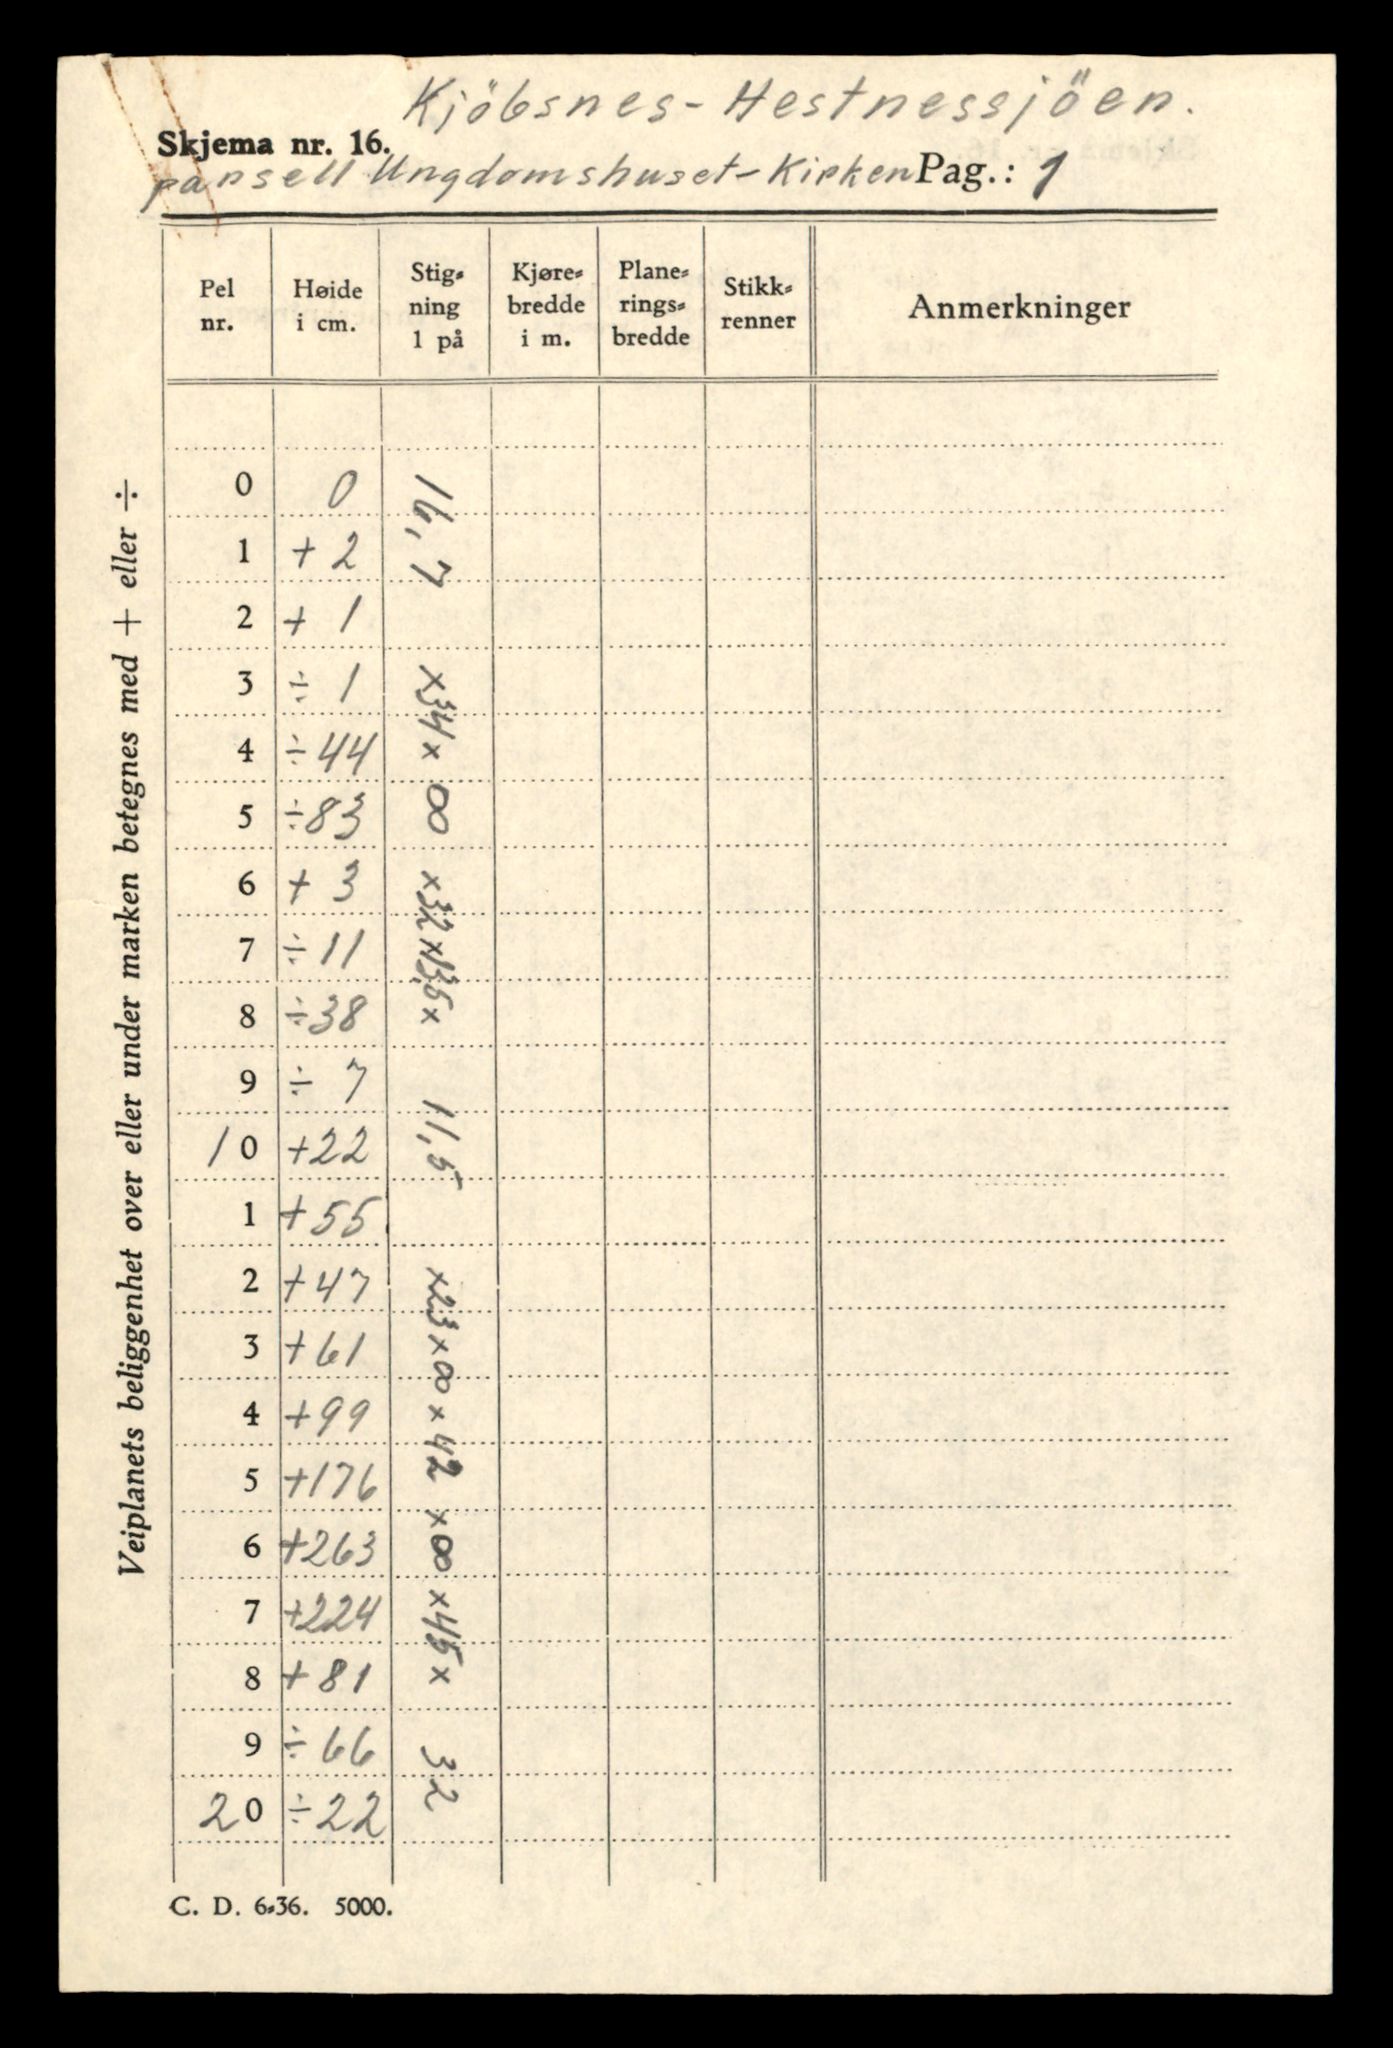 Kjöbsnes - Hestnessjöen.
Skjema nr. 16.
parsell Ungdomshuset - Kirken Pag.: 1
Pel nr. | Høide i cm. | Stigning 1 på | Kjørebredde i m. | Planeringsbredde | Stikkrenner | Anmerkninger
0 | 0 | 16,7
1 | + 2
2 | + 1
3 | ÷ 1 | x34x
4 | ÷ 44
5 | ÷ 83 | ∞
6 | + 3 | x32x
7 | ÷ 11 | 13,5x
8 | ÷ 38
9 | ÷ 7
10 | + 22 | 11,5
1 | + 55
2 | + 47 | x23x
3 | + 61 | ∞
4 | + 99 | x42
5 | + 176
6 | + 263 | x∞
7 | + 224 | x45x
8 | + 81
9 | ÷ 66 | 32
20 | ÷ 22
Veiplanets beliggenhet over eller under marken betegnes med + eller ÷
C. D. 6-36. 5000.